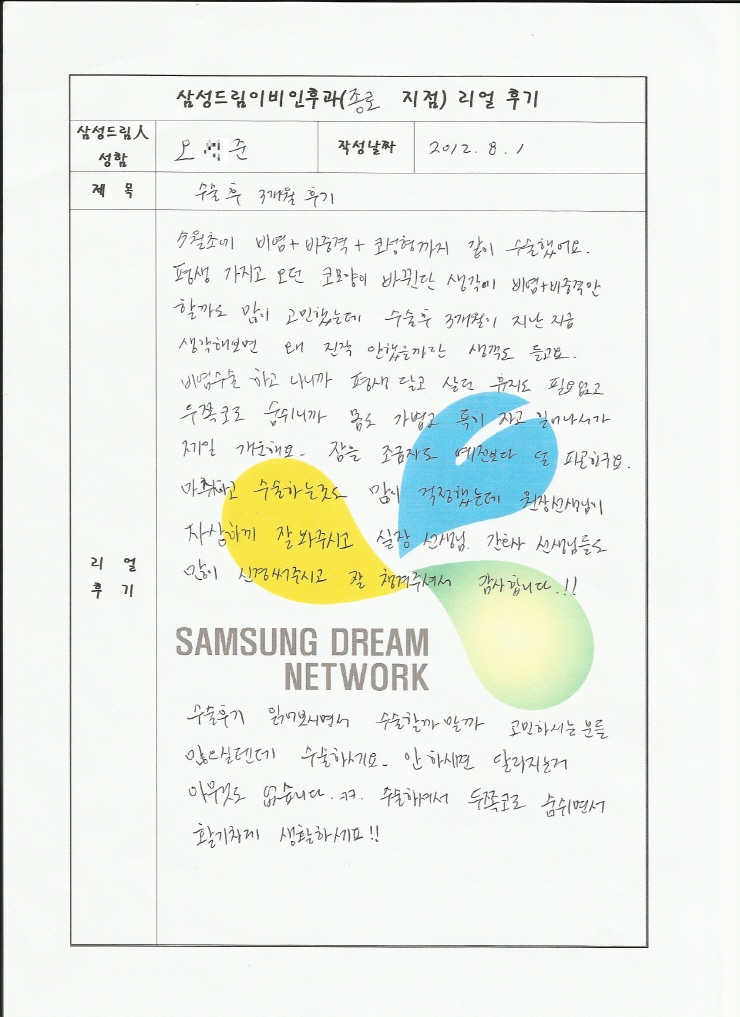 삼성드림이비인후과(종로 지점) 리얼 후기
삼성드림人
성함
오 준
작성날짜
2012. 8. 1
제 목
수술 후 3개월 후기
5월초에 비염+비중격+코성형까지 같이 수술했어요.
평생 가지고 오던 코모양이 바뀐단 생각에 비염+비중격만
할까도 많이 고민했는데 수술후 3개월이 지난 지금
생각해보면 왜 진작 안했을까란 생각도 들고요.
비염수술 하고 나니까 평생 달고 살던 휴지도 필요없고
두쪽코로 숨쉬니까 몸도 가볍고 특히 자고 일어나서가
제일 개운해요. 잠을 조금자도 예전보다 덜 피곤하구요.
마취하고 수술하는것도 많이 걱정했는데 원장선생님이
자상하게 잘 봐주시고 실장 선생님, 간호사 선생님들도
많이 신경써주시고 잘 챙겨주셔서 감사합니다.!!
리 얼
후 기
SAMSUNG DREAM
NETWORK
수술후기 읽어보시면서 수술할까 말까 고민하시는 분들
많으실텐데 수술하세요. 안 하시면 달라지는거
아무것도 없습니다. ㅋㅋ. 수술하셔서 두쪽코로 숨쉬면서
활기차게 생활하세요!!